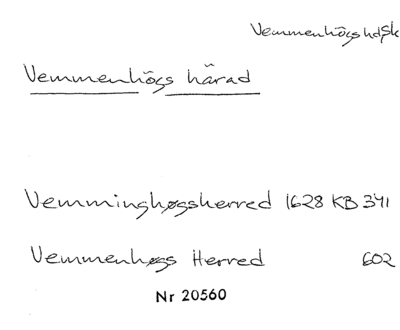 Vemmenhögs hd, Sk
Vemmenhögs härad
Vemminghøgsherred 1628 KB 341
Vemmenhøgs Herred 602
Nr 20560